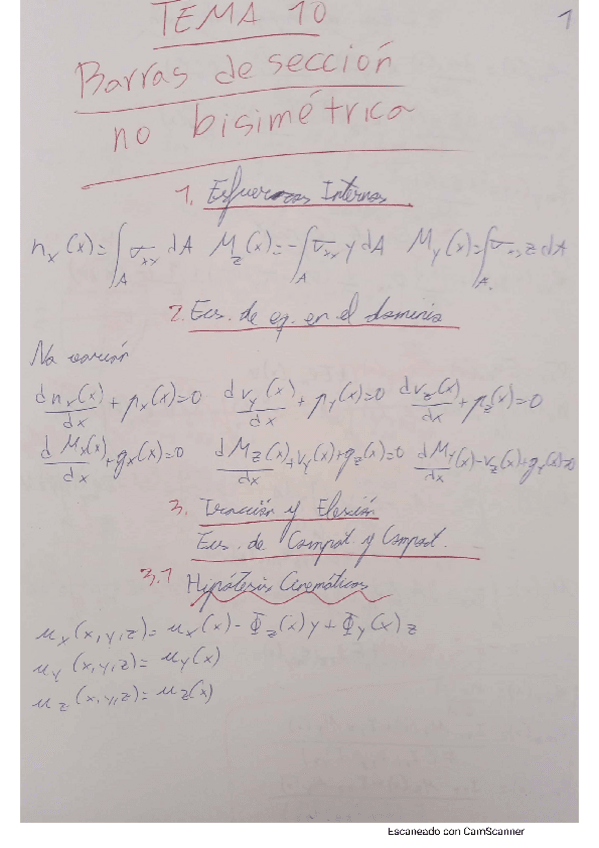 TEMA 10
1
Barras de sección
no bisimétrica
1. Esfuerzos Internos
n_x(x)=∫_A σ_xx dA M_z(x)=-∫_A σ_xx y dA M_y(x)=∫_A σ_xx z dA
2. Ecs. de eq. en el dominio
No varían
dn_x(x)/dx + p_x(x)=0 dv_y(x)/dx + p_y(x)=0 dv_z(x)/dx + p_z(x)=0
dM_x(x)/dx + g_x(x)=0 dM_z(x)/dx + v_y(x)+g_z(x)=0 dM_y(x)/dx - v_z(x)+g_y(x)=0
3. Tracción y Flexión
Ecs. de Compat. y Comport.
3.1 Hipótesis Cinemáticas
u_x(x,y,z)= u_x(x) - Φ_z(x)y + Φ_y(x)z
u_y(x,y,z)= u_y(x)
u_z(x,y,z)= u_z(x)
Escaneado con CamScanner